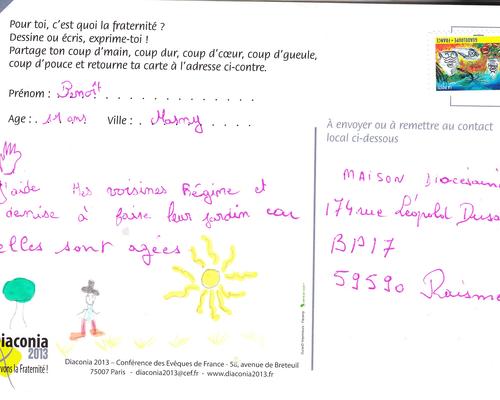 Pour toi, c'est quoi la fraternité ?
Dessine ou écris, exprime-toi !
Partage ton coup d'main, coup dur, coup d'cœur, coup d'gueule,
coup d'pouce et retourne ta carte à l'adresse ci-contre.
Prénom : Benoît
Age : 11 ans Ville : Masny
j'aide Mes voisines Régime et
denise à faire leur jardin car
elles sont agées
Diaconia
2013
vons la Fraternité !
Diaconia 2013 – Conférence des Evêques de France - 58, avenue de Breteuil
75007 Paris - diaconia2013@cef.fr - www.diaconia2013.fr
À envoyer ou à remettre au contact
local ci-dessous
MAISON Diocésaine
174 rue Léopold Dusa
BP17
59590 Raisme